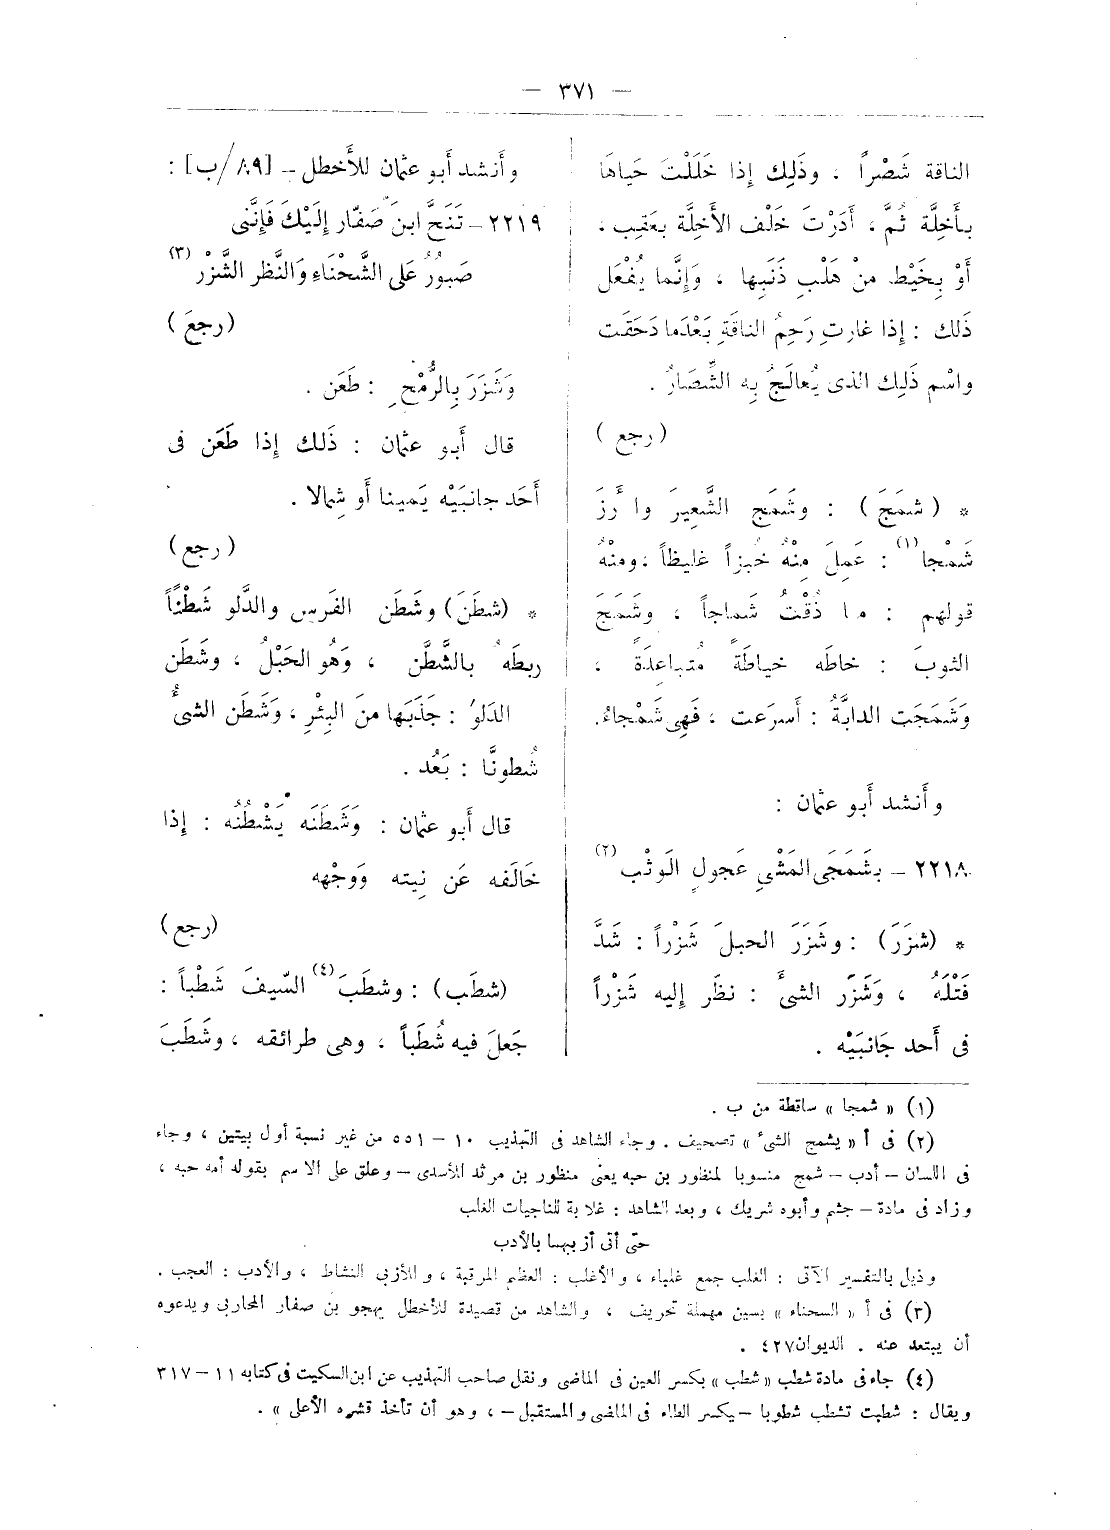 — ٣٧١ —
الناقة شَصْراً ، وذَلِك إذا خَلَلْتَ حَياءَها
بأَخِلَّة ثُمَّ ، أَدَرْتَ خَلْف الأَخِلَّة بعَقِب ،
أَوْ بِخَيْط منْ هَلْبِ ذَنَبِها ، وَإِنَّما يُفْعَل
ذَلك : إذا غارتِ رَحِمُ الناقَةِ بَعْدَما دَحَقَت
واسْم ذَلِك الذى يُعالَجُ بِه الشِّصَارُ .
( رجع )
* ( شمَجَ ) : وشَمَج الشَّعِيرَ والأَرُزَ
شَمْجا (١) : عَمِلَ مِنْهُ خُبزاً غليظاً ، ومنْهُ
قولهم : ما ذُقْتُ شَماجاً ، وشَمَجَ
الثوبَ : خاطَه خياطَةً مُتباعِدَةً ،
وَشَمَجَت الدابَّةُ : أَسرَعت ، فَهِى شَمْجاءُ.
وأَنشد أَبو عثمان :
٢٢١٨ – بشَمَجَى المَشْىِ عَجولِ الوَثْبِ (٢)
* (شزَرَ) : وشَزَرَ الحبلَ شَزْراً : شَدَّ
فَتْلَهُ ، وَشَزَر الشىءَ : نظَر إليه شَزْراً
فى أَحد جَانبَيْه .
وأَنشد أَبو عثمان للأَخطل – [٨٩/ب] :
٢٢١٩ – تَنَحَّ ابنَ صَفّار إِلَيْكَ فَإِنَّنى
صَبُورٌ على الشَّحْنَاءِ وَالنَّظَرِ الشَّزْرِ (٣)
(رجعَ )
وَشَزَرَ بِالرُّمْحِ : طَعَن .
قال أَبو عثمان : ذَلك إذا طَعَن فى
أَحَد جانبَيْه يَمينا أَو شِمالا .
( رجع )
* (شطَنَ) وشَطَن الفَرَس والدَّلو شَطْناً
ربطَه بالشَّطَن ، وَهُو الحَبْلُ ، وشَطَن
الدَلوَ : جَذَبَها منَ البِئْرِ ، وَشَطَن الشىءُ
شُطونًا : بَعُد .
قال أَبو عثمان : وَشَطَنَه يَشْطُنُه : إذا
خَالَفه عَن نِيته وَوجْهه
(رجع )
(شطَب) : وشطَبَ (٤) السّيفَ شَطْباً :
جَعلَ فيه شُطَباً ، وهى طرائقه ، وشَطَبَ
(١) « شمجا » ساقطة من ب .
(٢) فى أ « يشمج الشىء » تصحيف . وجاء الشاهد فى التهذيب ١٠ – ٥٥١ من غير نسبة أول بيتين ، وجاء
فى اللسان – أدب – شمج منسوبا لمنظور بن حبه يعنى منظور بن مرثد الأسدى – وعلق على الاسم بقوله أمه حبه ،
وزاد فى مادة – جشم وأبوه شريك ، وبعد الشاهد : غلابة للناجيات الغلب
حتى أتى أزبيها بالأدب
وذيل بالتفسير الآتى : الغلب جمع غلباء ، والأغلب : العظيم المرقبة ، والأزبى النشاط ، والأدب : العجب .
(٣) فى أ « السحناء » بسين مهملة تحريف ، والشاهد من قصيدة للأخطل يهجو بن صفار المحاربى ويدعوه
أن يبتعد عنه . الديوان ٤٢٧ .
(٤) جاء فى مادة شطب « شطب » بكسر العين فى الماضى ونقل صاحب التهذيب عن ابن السكيت فى كتابه ١١ – ٣١٧
ويقال : شطبت تشطب شطوبا – بكسر الطاء فى الماضى والمستقبل – ، وهو أن تأخذ قشره الأعلى » .